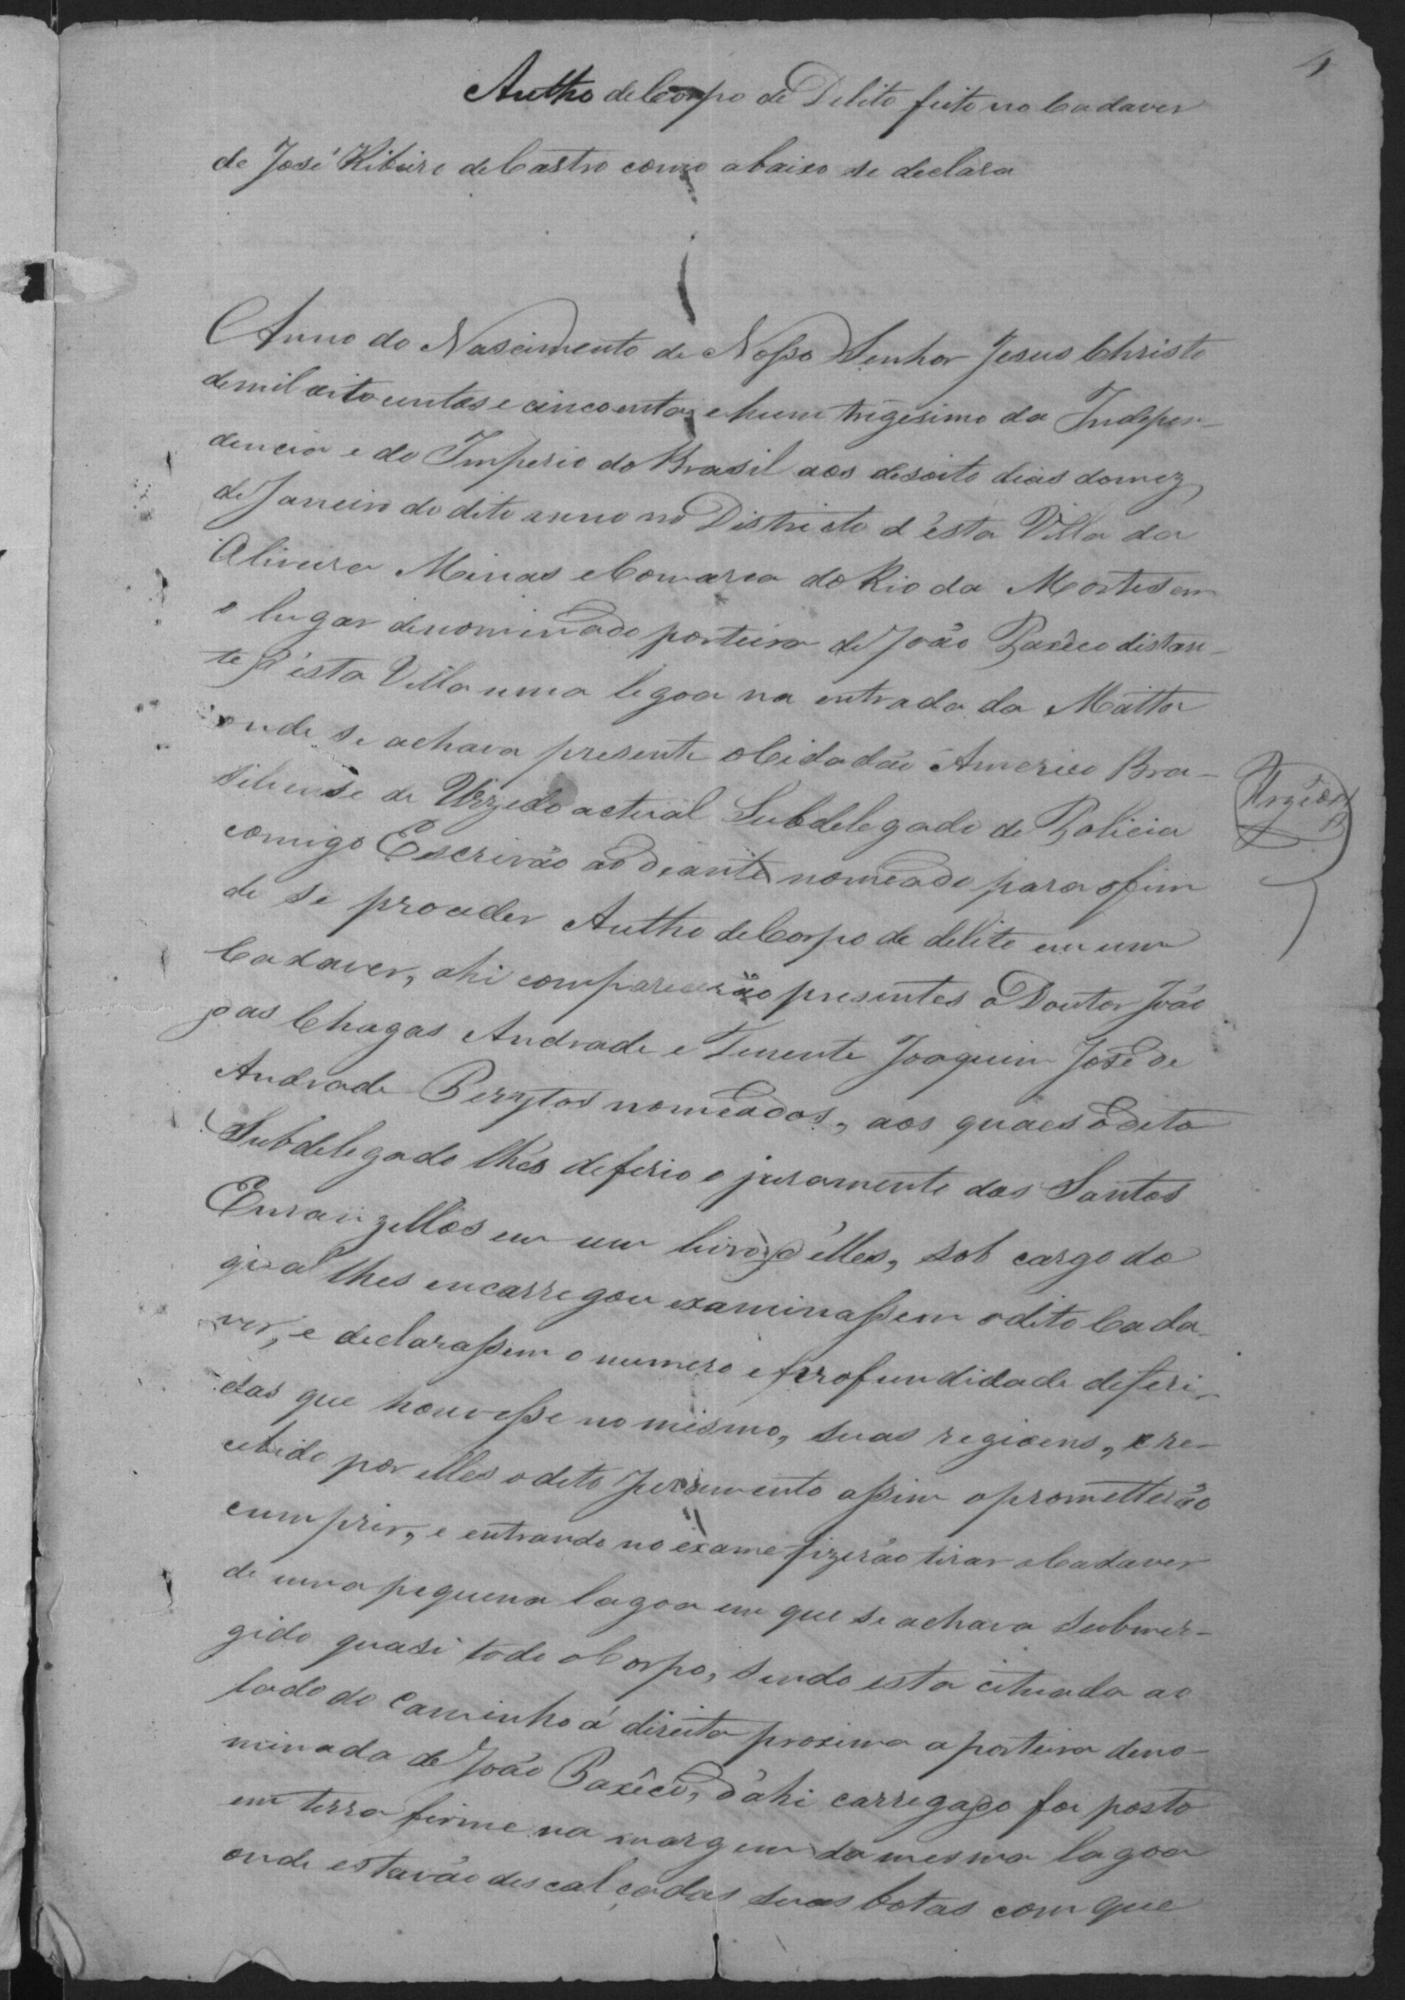 4
Autho de Corpo de Delito feito no Cadaver
de José Ribeiro de Castro como abaixo se declara
Anno do Nascimento de Nosso Senhor Jesus Christo
de mil oito centos e cincoenta e hum trigesimo da Indepen-
dencia e do Imperio do Brasil aos desoito dias do mez
de Janeiro do dito anno no Districto d'esta Villa da
Oliveira Minas e Comarca do Rio da Mortes em
o lugar denominado porteira de João Paxêco distan-
te d'esta Villa uma legoa na entrada da Matta
onde se achava presente o Cidadão Americo Bra-
siliense de Urzedo actual Subdelegado de Policia
comigo Escrivão ao deante nomeado para o fim
de se proceder Autho de Corpo de delito em um
Cadaver, ahi comparecerão presentes o Doutor João
das Chagas Andrade e Tenente Joaquim José de
Andrade Perytos nomeados, aos quaes o dito
Subdelegado lhes deferio o juramento dos Santos
Evangellhos em um livro d'elles, sob cargo do
qual lhes encarregou examinassem o dito Cada-
ver, e declarassem o numero e profundidade de feri-
das que houvesse no mesmo, suas regioens, e re-
cebido por elles o dito Juramento assim o prometterão
cumprir, e entrando no exame fizerão tirar o Cadaver
de uma pequena lagoa em que se achava submer-
gido quasi todo o Corpo, sendo esta cituada ao
lado do Caminho á direita proxima a porteira deno-
minada de João Paxêco, d'ahi carregado foi posto
em terra firme na margem da mesma lagoa
onde estavão descalçadas suas botas com que